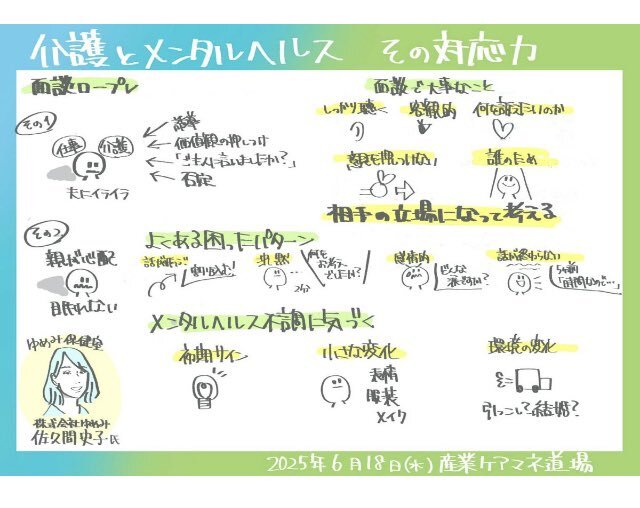 介護とメンタルヘルス その対応力
面談ロープレ
その1
仕事
介護
価値観の押しつけ
「ご主人に言いましたか?」
否定
夫にイライラ
その2
親が心配
眠れない
ゆめみ保健室
株式会社ゆめみ
佐久間史子氏
面談で大事なこと
しっかり聴く
客観的
何を話したいのか
意見を押しつけない
誰のため
相手の立場になって考える
よくある困ったパターン
沈黙
感情的
話が終わらない
5分前
メンタルヘルス不調に気づく
初期サイン
小さな変化
表情
服装
メイク
環境の変化
引っこし?結婚?
2025年6月18日(水)産業ケアマネ道場